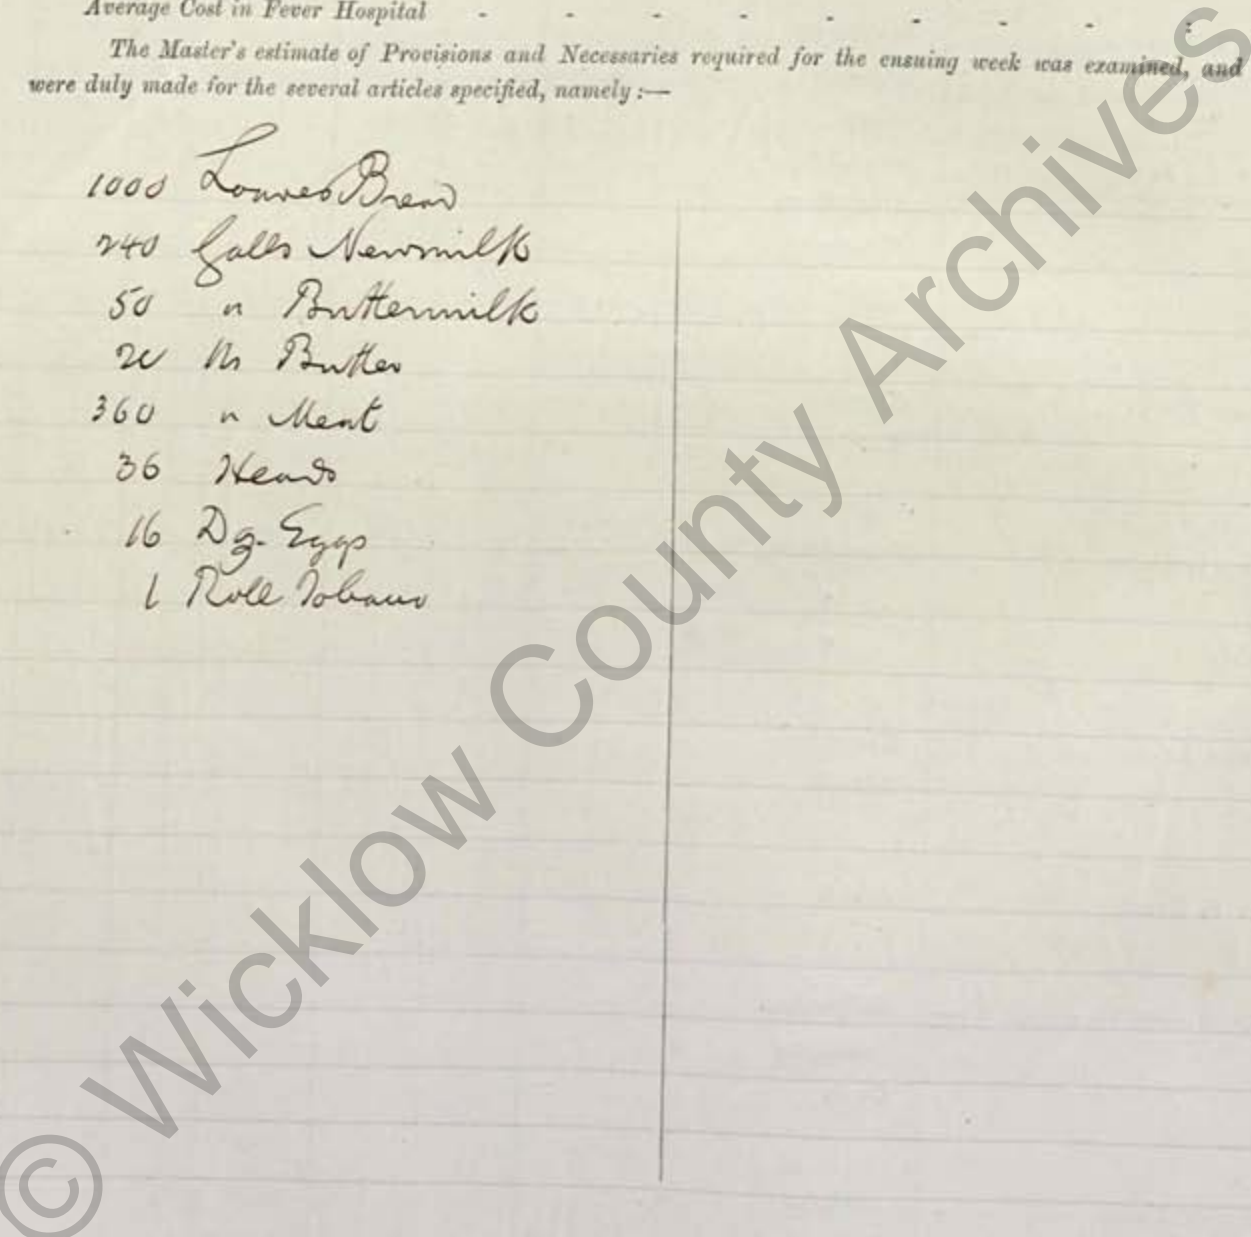 Average Cost in Fever Hospital - - - - - - - - :
The Master's estimate of Provisions and Necessaries required for the ensuing week was examined, and
were duly made for the several articles specified, namely :—
1000 Loaves Bread
240 Galls Newmilk
50 " Buttermilk
20 lbs Butter
360 " Meat
36 Heads
16 Dz. Eggs
1 Roll Tobacco
© Wicklow County Archives